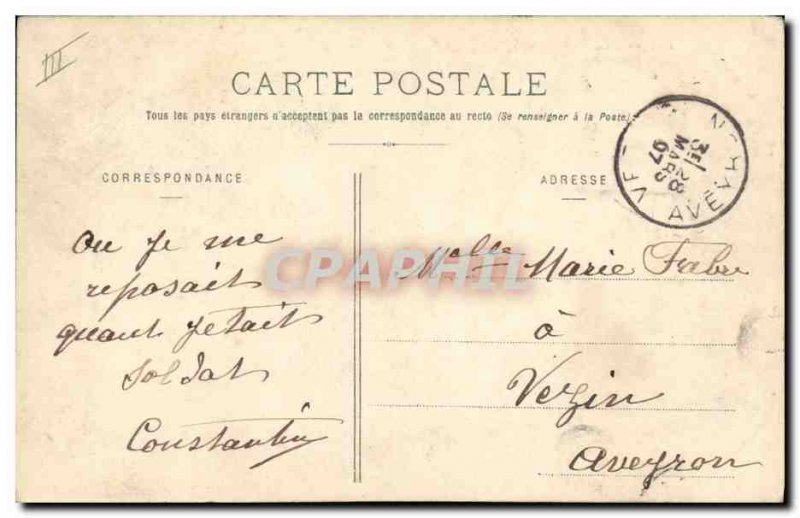 III
CARTE POSTALE
Tous les pays étrangers n'acceptent pas la correspondance au recto (Se renseigner à la Poste)
CORRESPONDANCE
ADRESSE
3E / 28
MARS
07
AVEYRON
CPAPHIL
Ou Je me
reposait
quant Jetait
Soldat
Constantin
Melle Marie Fabre
à
Vezin
Aveyron